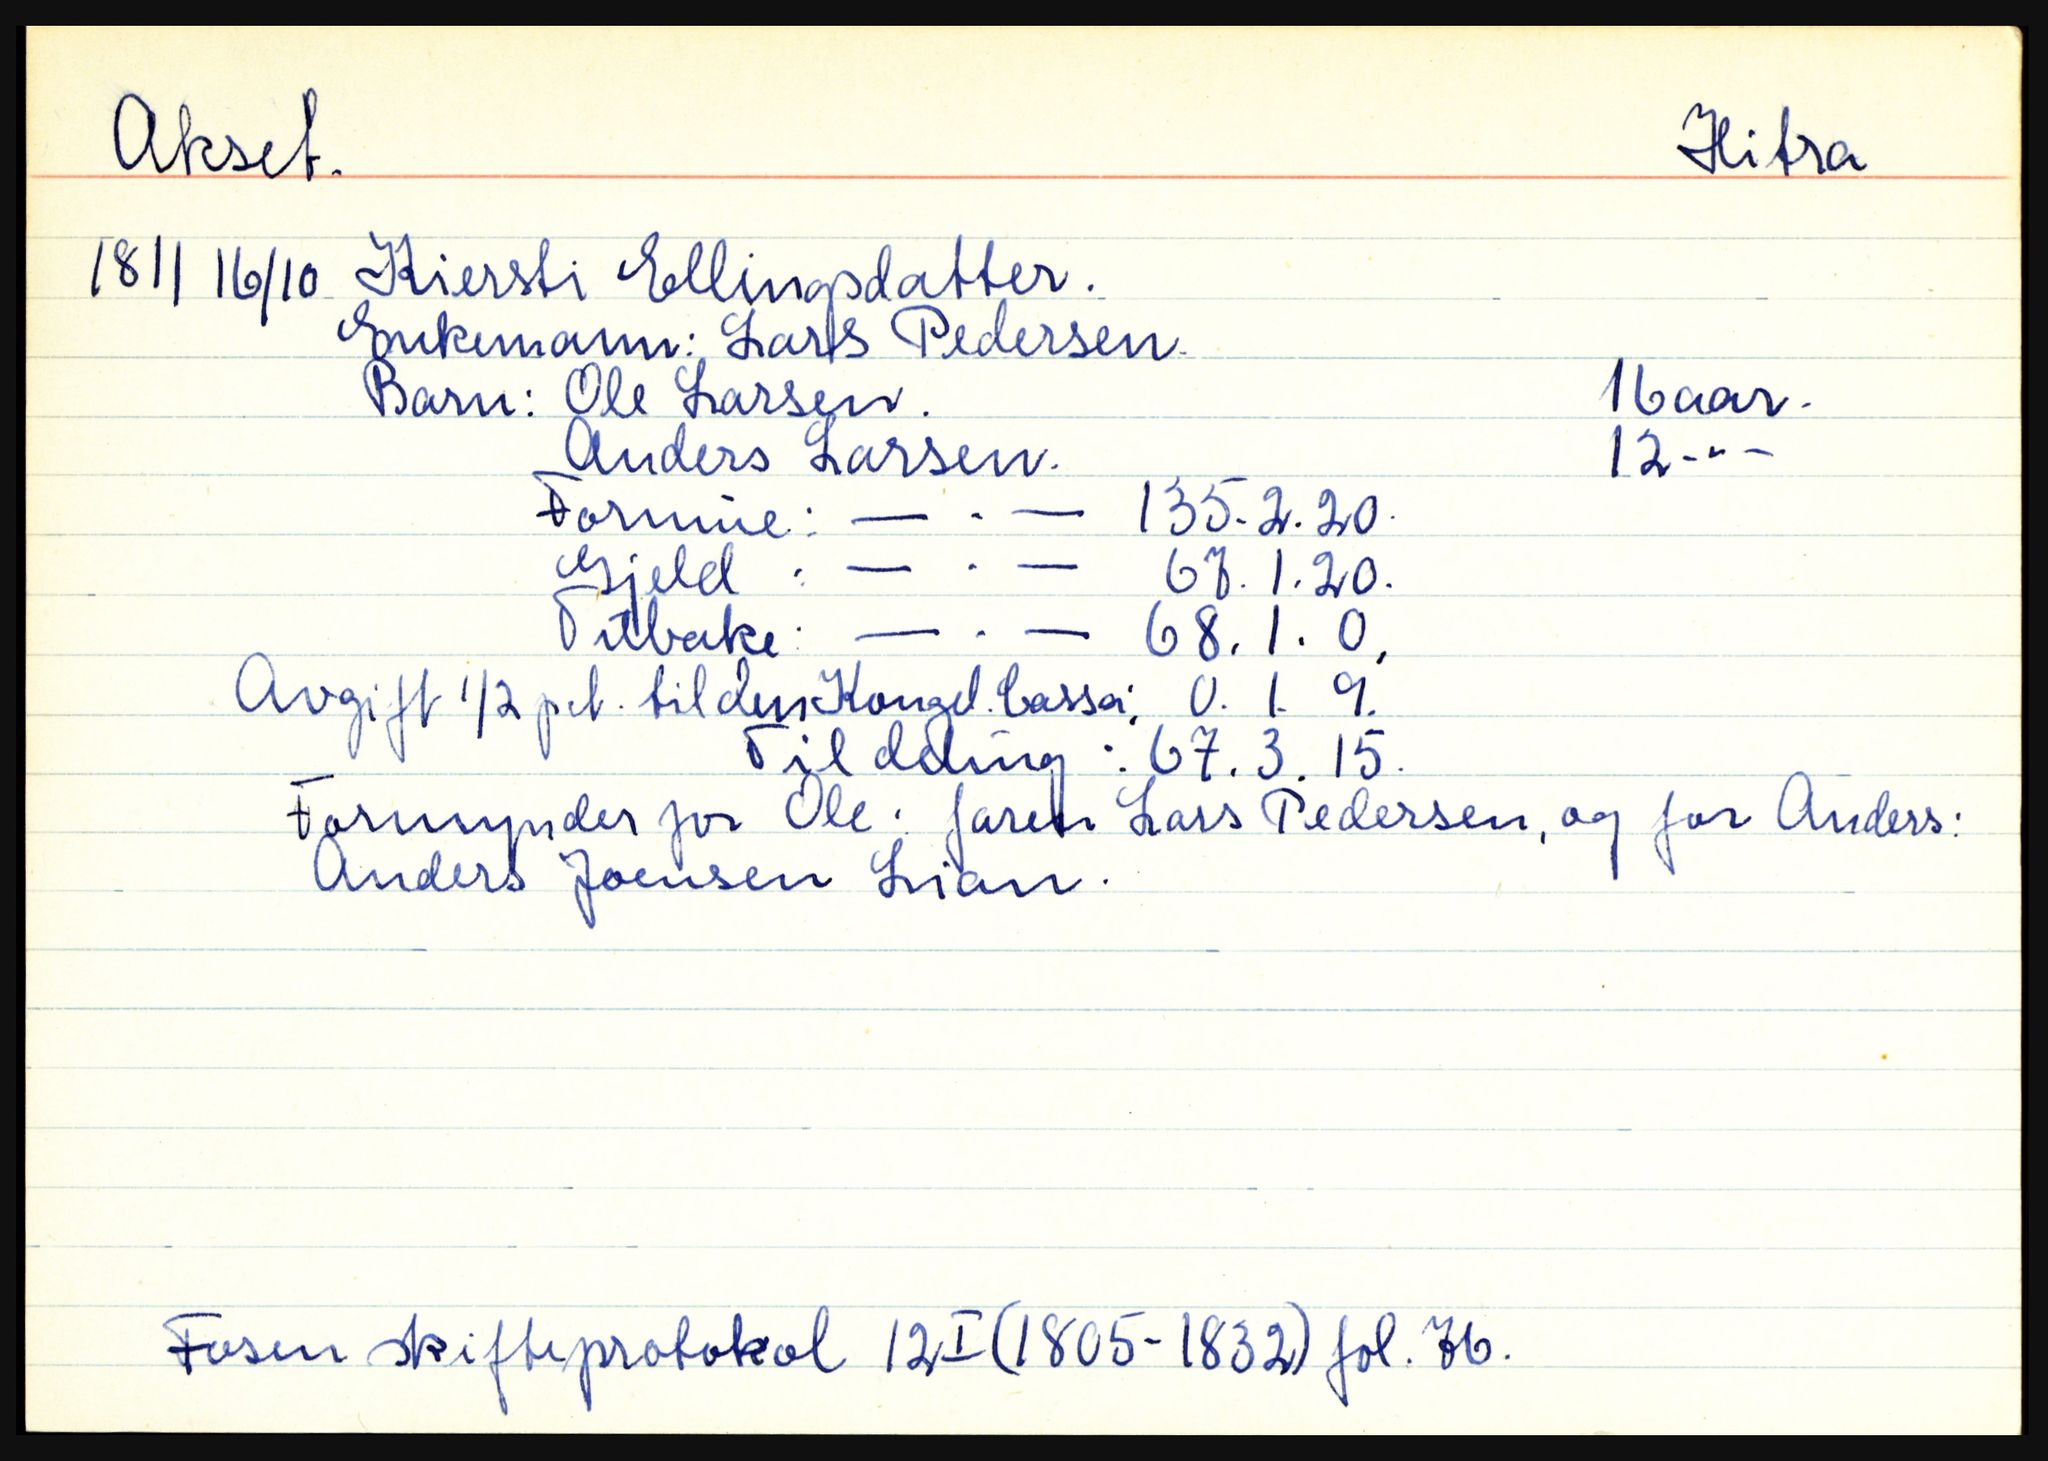 Akset. Hitra
1811 16/10 Kiersti Ellingsdatter.
Enkemann: Lars Pedersen.
Barn: Ole Larsen. 16 aar.
Anders Larsen. 12 -"-
Formue: — . — 135. 2. 20.
Gjeld : — . — 67. 1. 20.
Tilbake: — . — 68. 1. 0.
Avgift 1/2 pct. til den Kongel. Cassa: 0. 1. 9.
Til deling : 67. 3. 15.
Formynder for Ole: faren Lars Pedersen, og for Anders:
Anders Joensen Lian.
Fosen skifteprotokol 12 I (1805-1832) fol. 76.